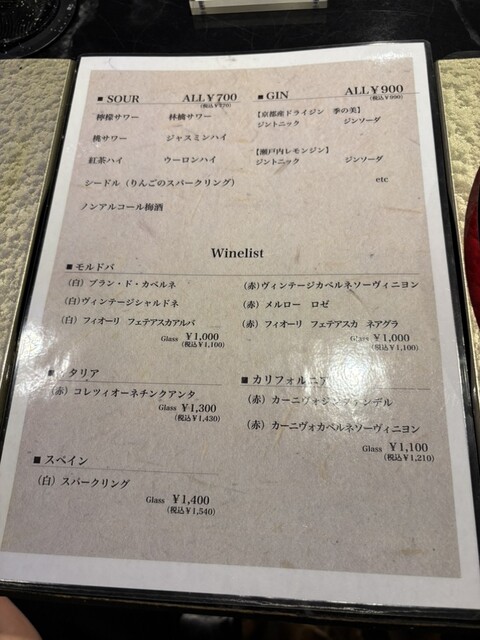 ■ SOUR ALL¥700
(税込¥770)
檸檬サワー 林檎サワー
桃サワー ジャスミンハイ
紅茶ハイ ウーロンハイ
シードル（りんごのスパークリング）
ノンアルコール梅酒
■ GIN ALL¥900
(税込¥990)
【京都産ドライジン 季の美】
ジントニック ジンソーダ
【瀬戸内レモンジン】
ジントニック ジンソーダ
etc
Winelist
■ モルドバ
（白）ブラン・ド・カベルネ
（白）ヴィンテージシャルドネ
（白）フィオーリ フェテアスカアルバ
Glass ¥1,000
(税込¥1,100)
（赤）ヴィンテージカベルネソーヴィニヨン
（赤）メルロー ロゼ
（赤）フィオーリ フェテアスカ ネアグラ
Glass ¥1,000
(税込¥1,100)
■ イタリア
（赤）コレツィオーネチンクアンタ
Glass ¥1,300
(税込¥1,430)
■ カリフォルニア
（赤）カーニヴォジンファンデル
（赤）カーニヴォカベルネソーヴィニヨン
Glass ¥1,100
(税込¥1,210)
■ スペイン
（白）スパークリング
Glass ¥1,400
(税込¥1,540)